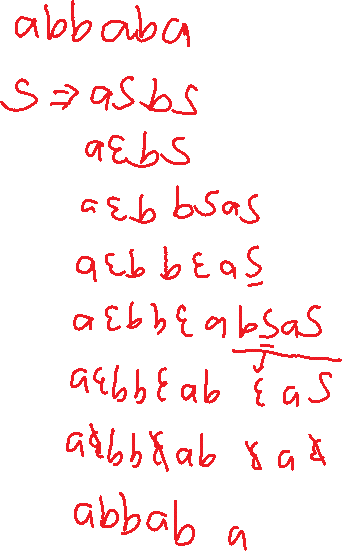 abbaba
S ⇒ aSbS
aεbS
aεb bSaS
aεb bεaS
aεbbεabSaS
aεbbεab εaS
aεbbεab εaε
abbab a